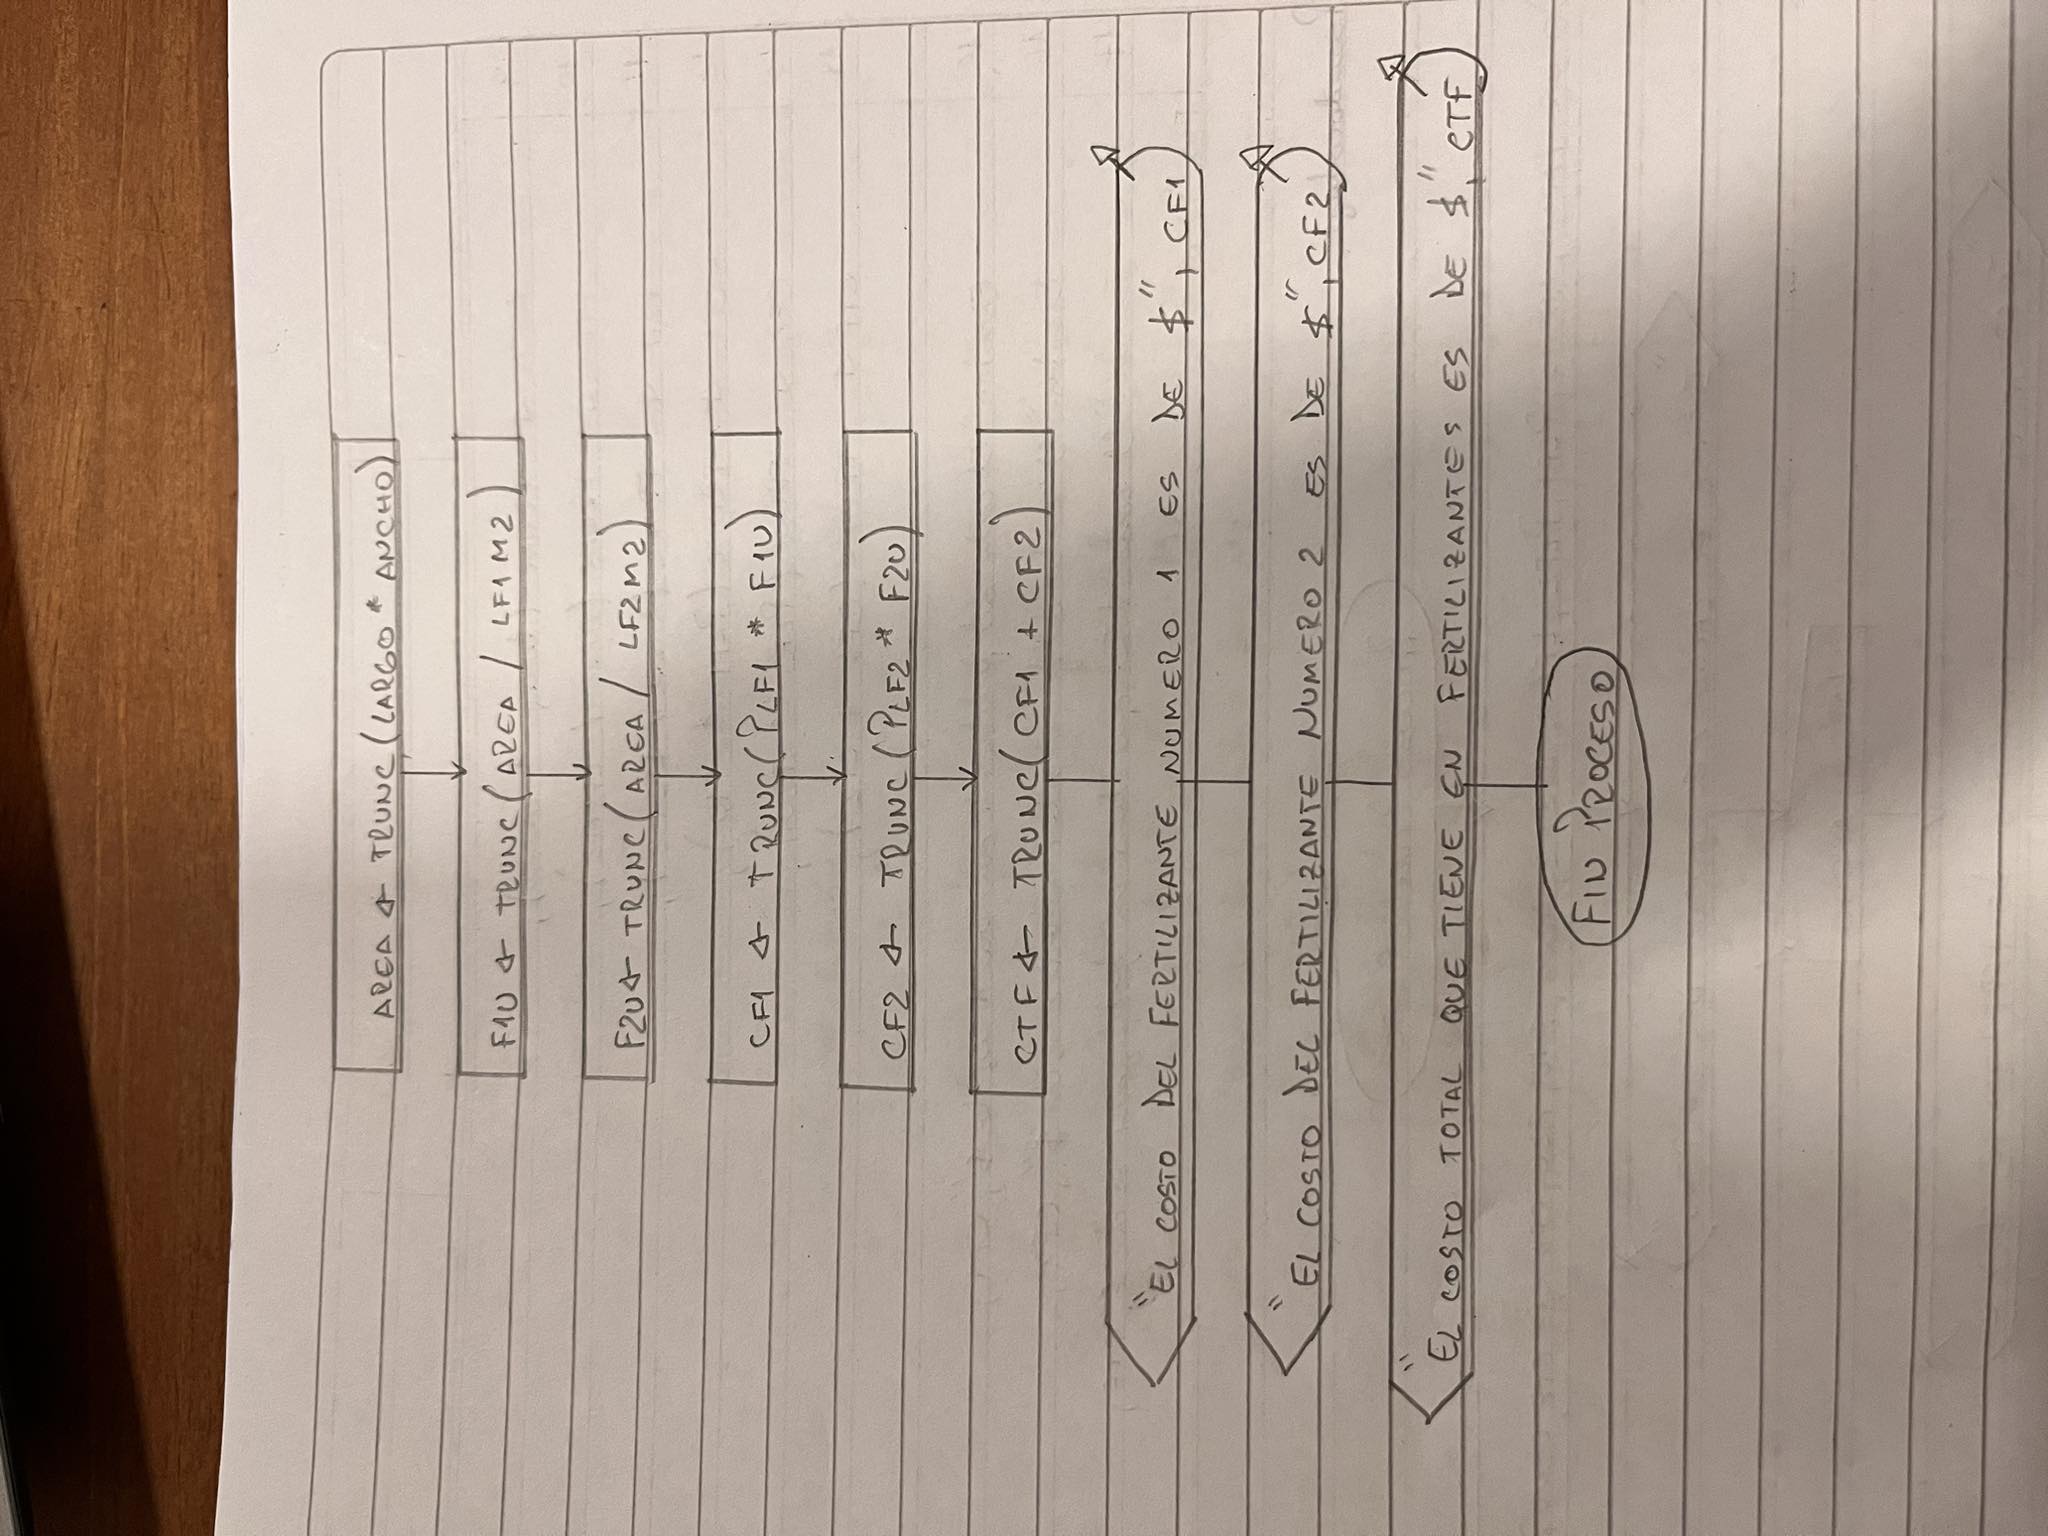 AREA ← TRUNC (LARGO * ANCHO)
F1U ← TRUNC (AREA / LF1M2)
F2U ← TRUNC (AREA / LF2M2)
CF1 ← TRUNC (PLF1 * F1U)
CF2 ← TRUNC (PLF2 * F2U)
CTF ← TRUNC (CF1 + CF2)
"EL COSTO DEL FERTILIZANTE NUMERO 1 ES DE $", CF1
"EL COSTO DEL FERTILIZANTE NUMERO 2 ES DE $", CF2
"EL COSTO TOTAL QUE TIENE EN FERTILIZANTES ES DE $", CTF
FIN PROCESO